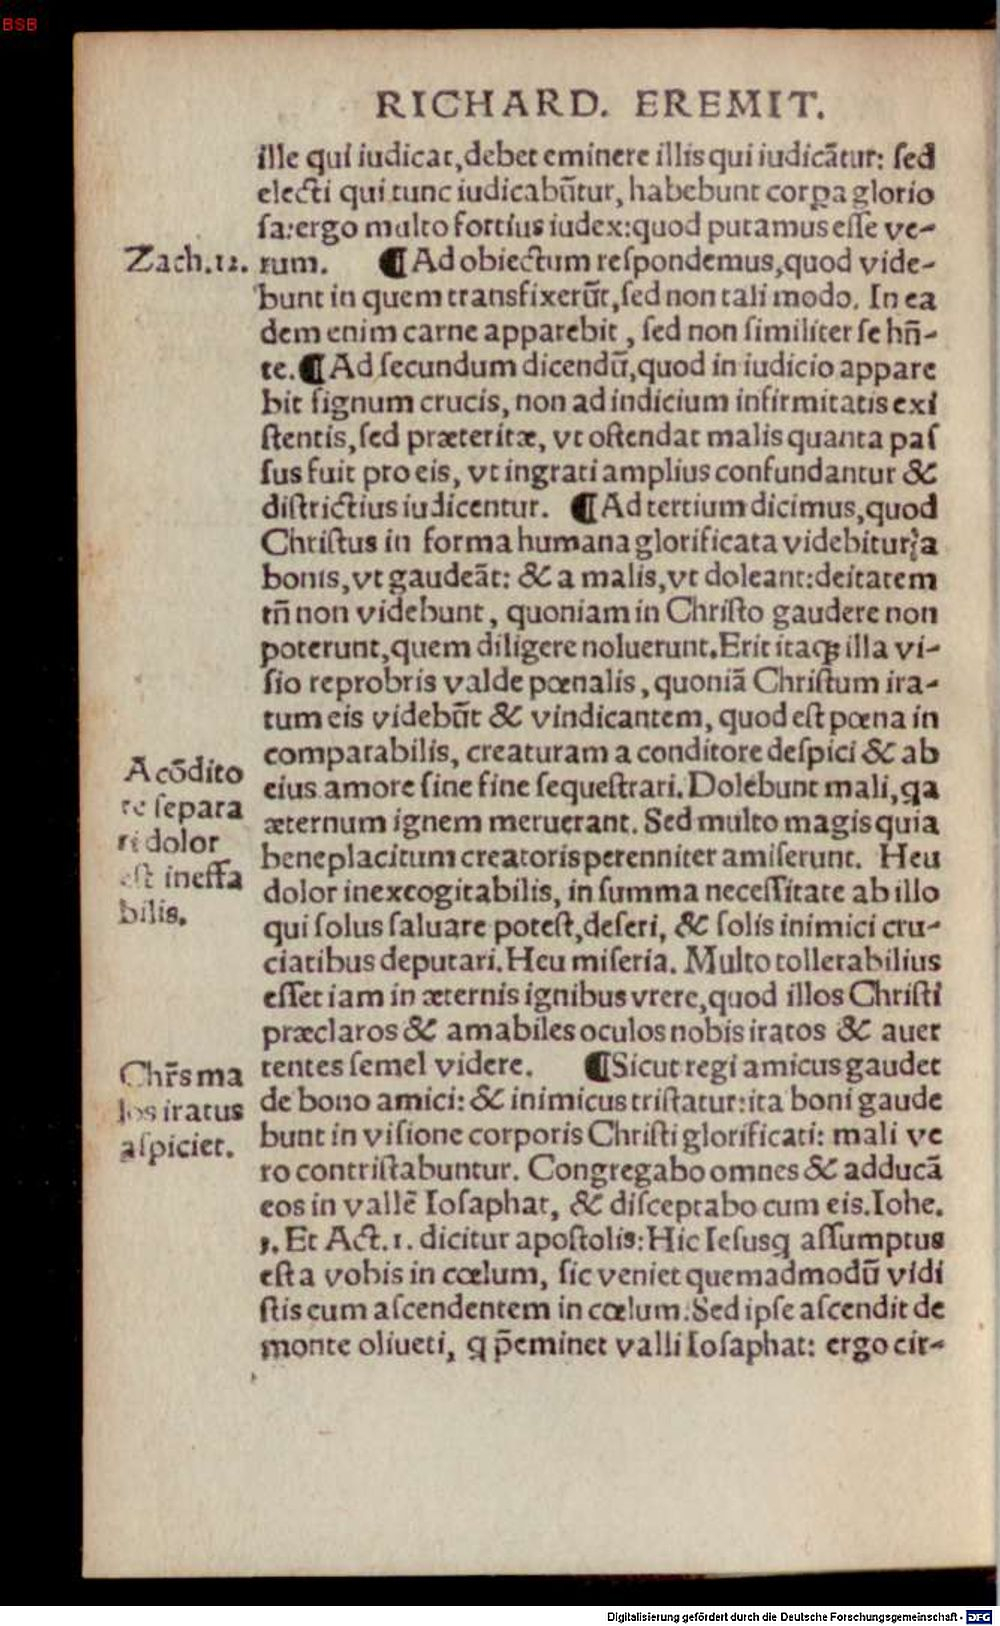 BSB
RICHARD. EREMIT.
ille qui iudicat, debet eminere illis qui iudicãtur: sed
electi qui tunc iudicabũtur, habebunt corꝑa glorio
sa: ergo multo fortius iudex: quod putamus esse ve-
Zach.12.
rum. ¶ Ad obiectum respondemus, quod vide-
bunt in quem transfixerũt, sed non tali modo. In ea
dem enim carne apparebit, sed non similiter se hñ-
te. ¶ Ad secundum dicendũ, quod in iudicio appare
bit signum crucis, non ad indicium infirmitatis exi
stentis, sed præteritæ, vt ostendat malis quanta pas
sus fuit pro eis, vt ingrati amplius confundantur &
districtius iudicentur. ¶ Ad tertium dicimus, quod
Christus in forma humana glorificata videbitur: a
bonis, vt gaudeãt: & a malis, vt doleant: deitatem
tñ non videbunt, quoniam in Christo gaudere non
poterunt, quem diligere noluerunt. Erit itaqꝫ illa vi-
sio reprobris valde pœnalis, quoniã Christum ira-
tum eis videbũt & vindicantem, quod est pœna in
comparabilis, creaturam a conditore despici & ab
eius amore sine fine sequestrari. Dolebunt mali, qa
æternum ignem meruerant. Sed multo magis quia
beneplacitum creatoris perenniter amiserunt. Heu
dolor inexcogitabilis, in summa necessitate ab illo
qui solus saluare potest, deseri, & solis inimici cru-
ciatibus deputari. Heu miseria. Multo tollerabilius
esset iam in æternis ignibus vrere, quod illos Christi
præclaros & amabiles oculos nobis iratos & auer
tentes semel videre. ¶ Sicut regi amicus gaudet
de bono amici: & inimicus tristatur: ita boni gaude
bunt in visione corporis Christi glorificati: mali ve
ro contristabuntur. Congregabo omnes & adducã
eos in vallẽ Iosaphat, & disceptabo cum eis. Iohe.
3. Et Act. 1. dicitur apostolis: Hic Iesus q assumptus
est a vobis in cœlum, sic veniet quemadmodũ vidi
stis eum ascendentem in cœlum: Sed ipse ascendit de
monte oliueti, q p̃eminet valli Iosaphat: ergo cir-
A cõdito
re separa
ri dolor
est ineffa
bilis.
Chr̃s ma
los iratus
aspiciet.
Digitalisierung gefördert durch die Deutsche Forschungsgemeinschaft - DFG